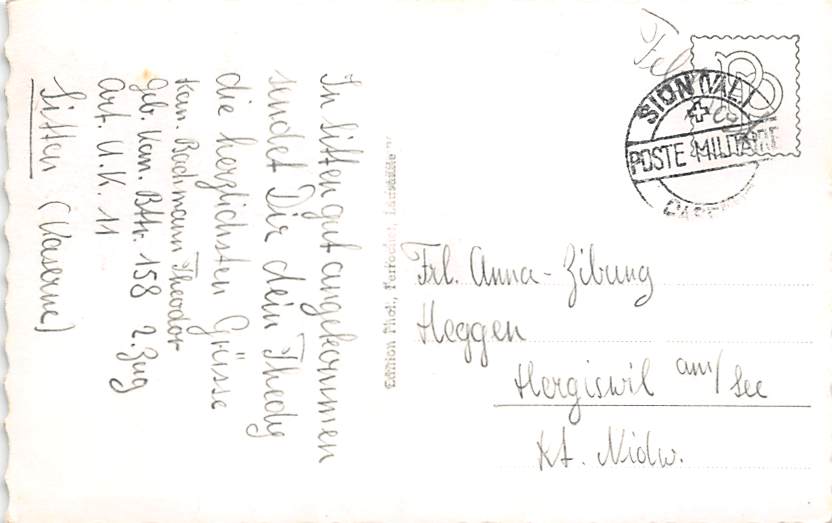 In Sitten gut angekommen
sendet Dir dein Thedy
die herzlichsten Grüsse
Kan. Bachmann Theodor
Geb. Kan. Bttr. 158 2. Zug
Art. U.K. 11
Sitten (Kaserne)
Edition Phot. Perrochet, Lausanne
SION (VAL.)
POSTE MILITAIRE
Frl. Anna Zibung
Heggen
Hergiswil am/See
Kt. Nidw.